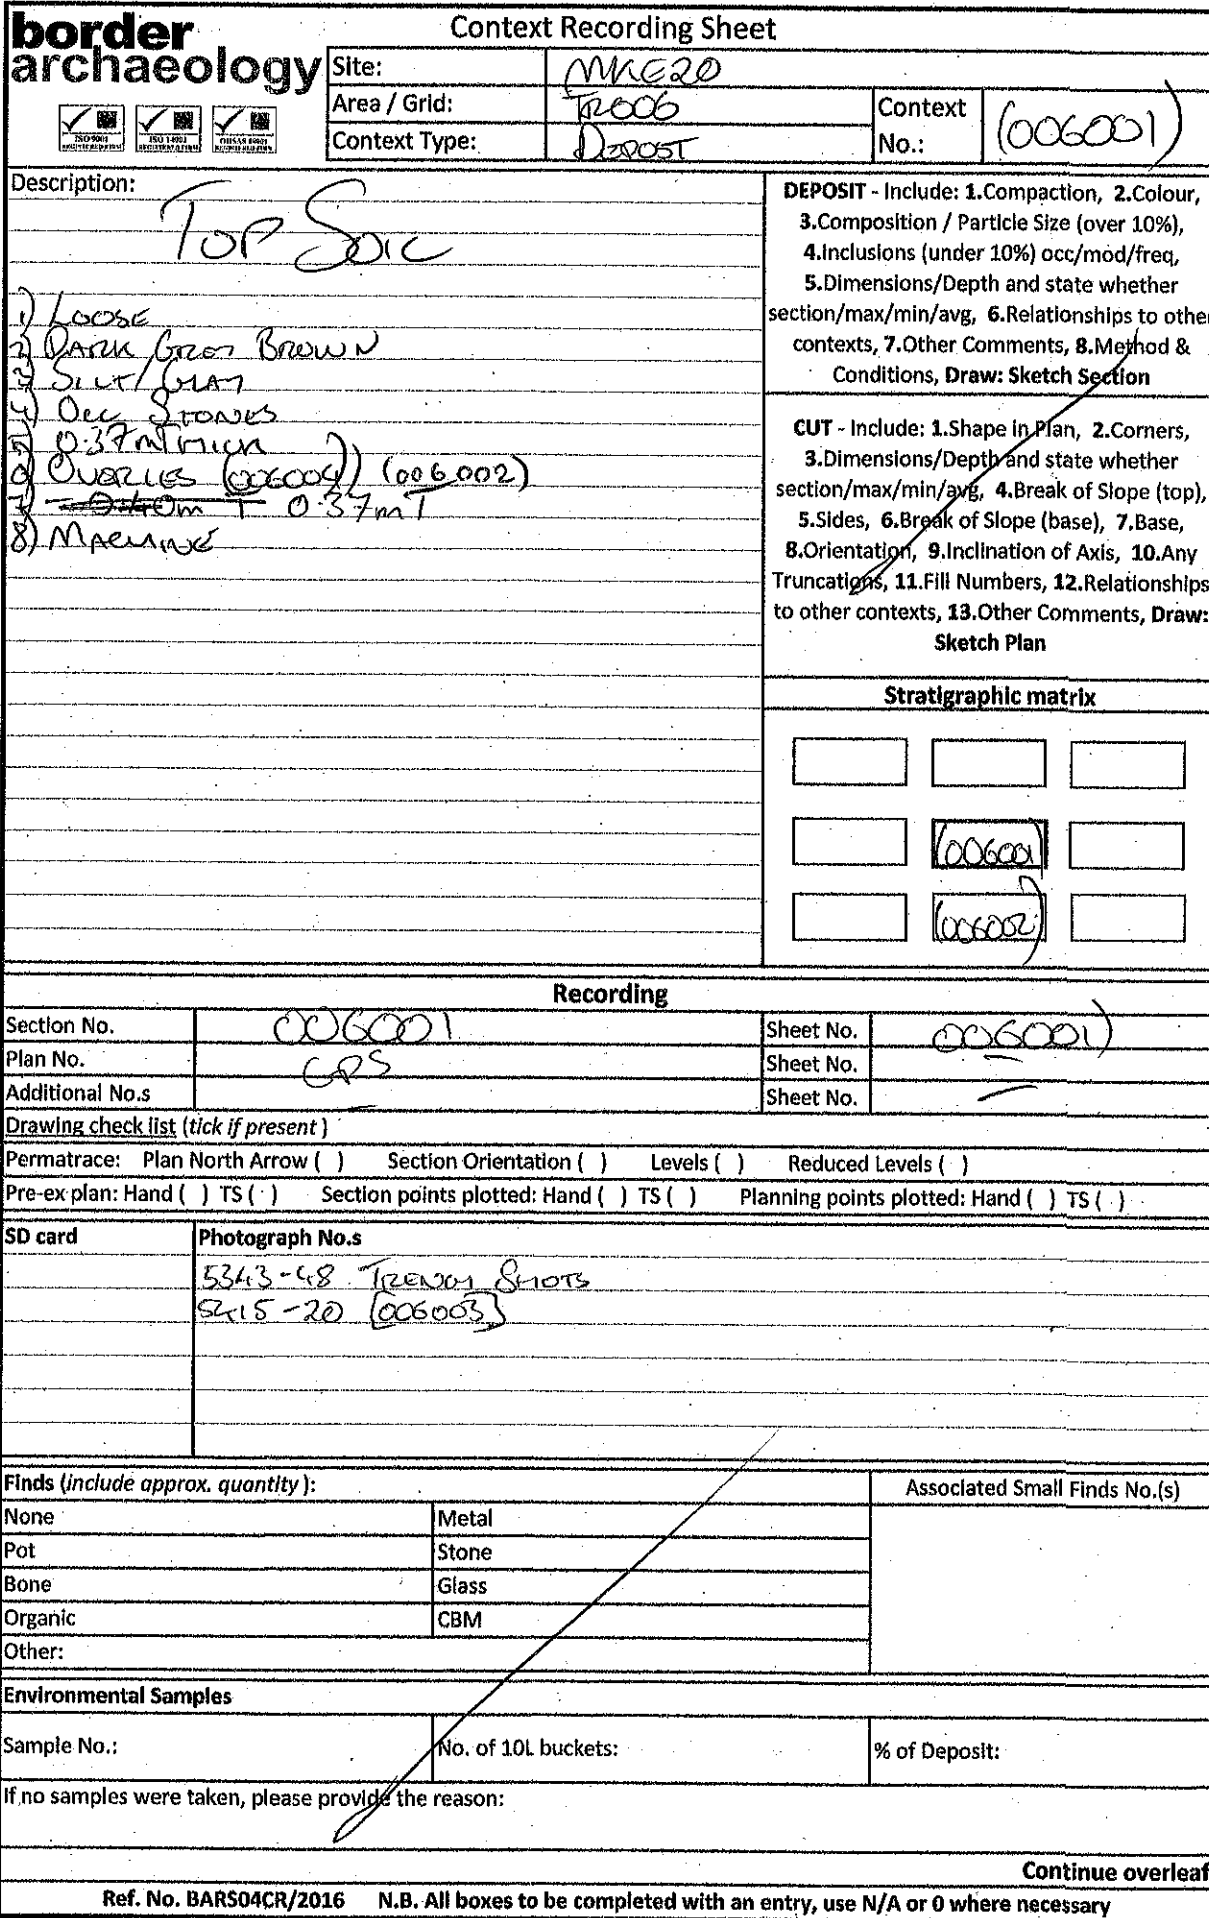 border
archaeology
Context Recording Sheet
Site: MKE20
Area / Grid: TR006
Context Type: DEPOST
Context No.: (006001)
ISO 9001
ISO 14001
OHSAS 18001
Description:
TOP SOIL
1) LOOSE
2) DARK GREY BROWN
3) SILT/CLAY
4) OCC STONES
5) 0.37m THICK
6) OVERLIES (006004) (006002)
7) 0.40m T 0.37m T
8) MACHINE
DEPOSIT - Include: 1.Compaction, 2.Colour,
3.Composition / Particle Size (over 10%),
4.Inclusions (under 10%) occ/mod/freq,
5.Dimensions/Depth and state whether
section/max/min/avg, 6.Relationships to other
contexts, 7.Other Comments, 8.Method &
Conditions, Draw: Sketch Section
CUT - Include: 1.Shape in Plan, 2.Corners,
3.Dimensions/Depth and state whether
section/max/min/avg, 4.Break of Slope (top),
5.Sides, 6.Break of Slope (base), 7.Base,
8.Orientation, 9.Inclination of Axis, 10.Any
Truncations, 11.Fill Numbers, 12.Relationships
to other contexts, 13.Other Comments, Draw:
Sketch Plan
Stratigraphic matrix
(006001)
(006002)
Recording
Section No. 006001 Sheet No. 006001)
Plan No. GPS Sheet No. –
Additional No.s – Sheet No. –
Drawing check list (tick if present)
Permatrace: Plan North Arrow ( ) Section Orientation ( ) Levels ( ) Reduced Levels ( )
Pre-ex plan: Hand ( ) TS ( ) Section points plotted: Hand ( ) TS ( ) Planning points plotted: Hand ( ) TS ( )
SD card Photograph No.s
5343-48 TRENCH SHOTS
5415-20 [006003]
Finds (include approx. quantity): Associated Small Finds No.(s)
None Metal
Pot Stone
Bone Glass
Organic CBM
Other:
Environmental Samples
Sample No.: No. of 10L buckets: % of Deposit:
If no samples were taken, please provide the reason:
Continue overleaf
Ref. No. BARS04CR/2016 N.B. All boxes to be completed with an entry, use N/A or 0 where necessary